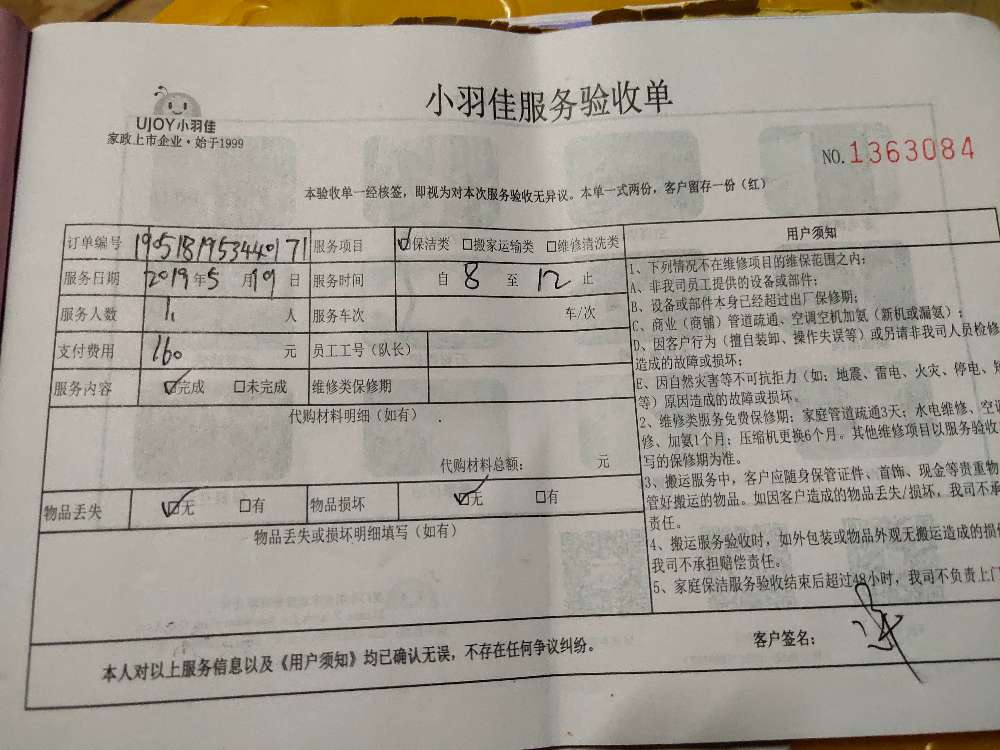 UJOY小羽佳
家政上市企业·始于1999
小羽佳服务验收单
NO.1363084
本验收单一经核签，即视为对本次服务验收无异议。本单一式两份，客户留存一份（红）
订单编号 1905181953440171 服务项目 ☑保洁类 □搬家运输类 □维修清洗类
服务日期 2019年5月19日 服务时间 自 8 至 12 止
服务人数 1 人 服务车次 车/次
支付费用 160 元 员工工号（队长）
服务内容 ☑完成 □未完成 维修类保修期
代购材料明细（如有）
代购材料总额： 元
物品丢失 ☑无 □有 物品损坏 ☑无 □有
物品丢失或损坏明细填写（如有）
用户须知
1、下列情况不在维修项目的维保范围之内：
A、非我司员工提供的设备或部件；
B、设备或部件本身已经超过出厂保修期；
C、商业（商铺）管道疏通、空调空机加氨（新机或漏氨）；
D、因客户行为（擅自装卸、操作失误等）或另请非我司人员检修
造成的故障或损坏；
E、因自然灾害等不可抗拒力（如：地震、雷电、火灾、停电、
等）原因造成的故障或损坏。
2、维修类服务免费保修期：家庭管道疏通3天；水电维修、空调
修、加氨1个月；压缩机更换6个月。其他维修项目以服务验收
写的保修期为准。
3、搬运服务中，客户应随身保管证件、首饰、现金等贵重物
管好搬运的物品。如因客户造成的物品丢失/损坏，我司不承
责任。
4、搬运服务验收时，如外包装或物品外观无搬运造成的损
我司不承担赔偿责任。
5、家庭保洁服务验收结束后超过48小时，我司不负责上门
本人对以上服务信息以及《用户须知》均已确认无误，不存在任何争议纠纷。
客户签名：